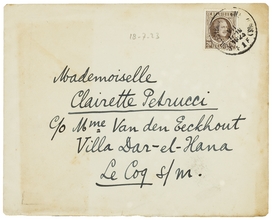 10-7-23
Mademoiselle
Clairette Petrucci
c/o Mme Van den Eeckhout
Villa Dar-el-Hana
Le Coq s/m.